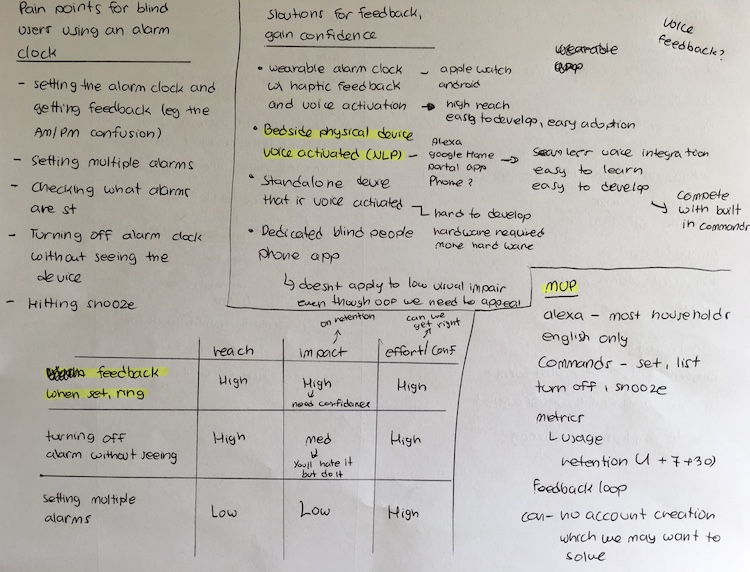 Pain points for blind
users using an alarm
clock
- setting the alarm clock and
getting feedback (eg the
Am/Pm confusion)
- Setting multiple alarms
- Checking what alarms
are st
- Turning off alarm clock
without seeing the
device
- Hitting snooze
Sloutions for feedback,
gain confidence
• wearable alarm clock
w/ haptic feedback
and voice activation
- apple watch
android
→ high reach
easy to develop, easy adoption
wearable
voice
feedback?
• Bedside physical device
voice activated (NLP) -
Alexa
google Home
portal app
Phone?
→ seamless voice integration
easy to learn
easy to develop
↳ compete
with built
in commands
• Standalone devie
that is voice activated
hard to develop
hardware required
more hard ware
• Dedicated blind people
phone app
↳ doesnt apply to low visual impair
even though oop we need to appeal
on retention
can we
get right
reach impact effort/conf
feedback
when set, ring
High High High
need confidence
turning off
alarm without seeing
High med High
You'll hate it
but do it
setting multiple
alarms
Low Low High
MVP
alexa - most households
english only
Commands - set, list
turn off, snooze
metrics
usage
retention (1 + 7 + 30)
Feedback loop
con - no account creation
which we may want to
solve